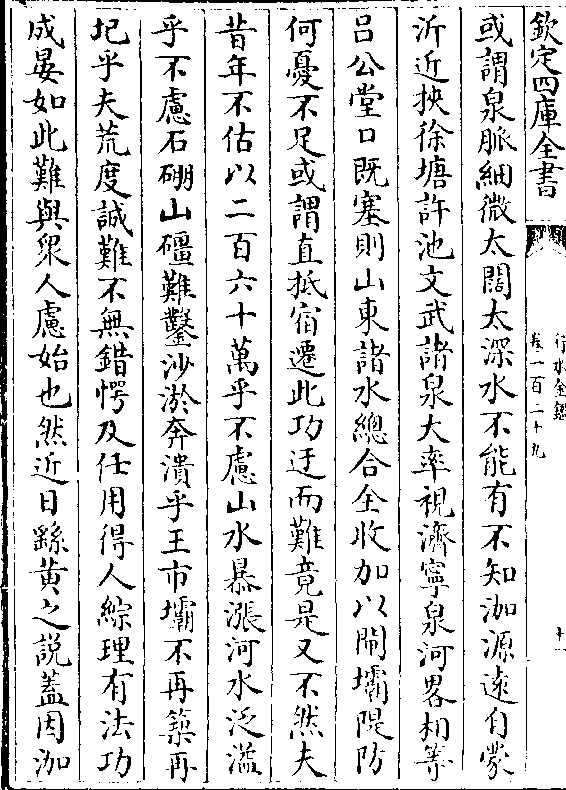 欽定四庫全書
行水金鑑
卷一百二十九
十一
或謂泉脈細微太闊太深水不能有不知泇源遠自蒙
沂近挾徐塘許池文武諸泉大率視濟寧泉河畧相等
呂公堂口既塞則山東諸水總合全收加以閘壩隄防
何憂不足或謂直抵宿遷此功迂而難竟是又不然夫
昔年不估以二百六十萬乎不慮山水暴漲河水泛濫
乎不慮石硼山礓難鑿沙淤奔潰乎王市壩不再築再
圮乎夫荒度誠難不無錯愕及任用得人綜理有法功
成晏如此難與衆人慮始也然近日繇黃之說蓋因泇